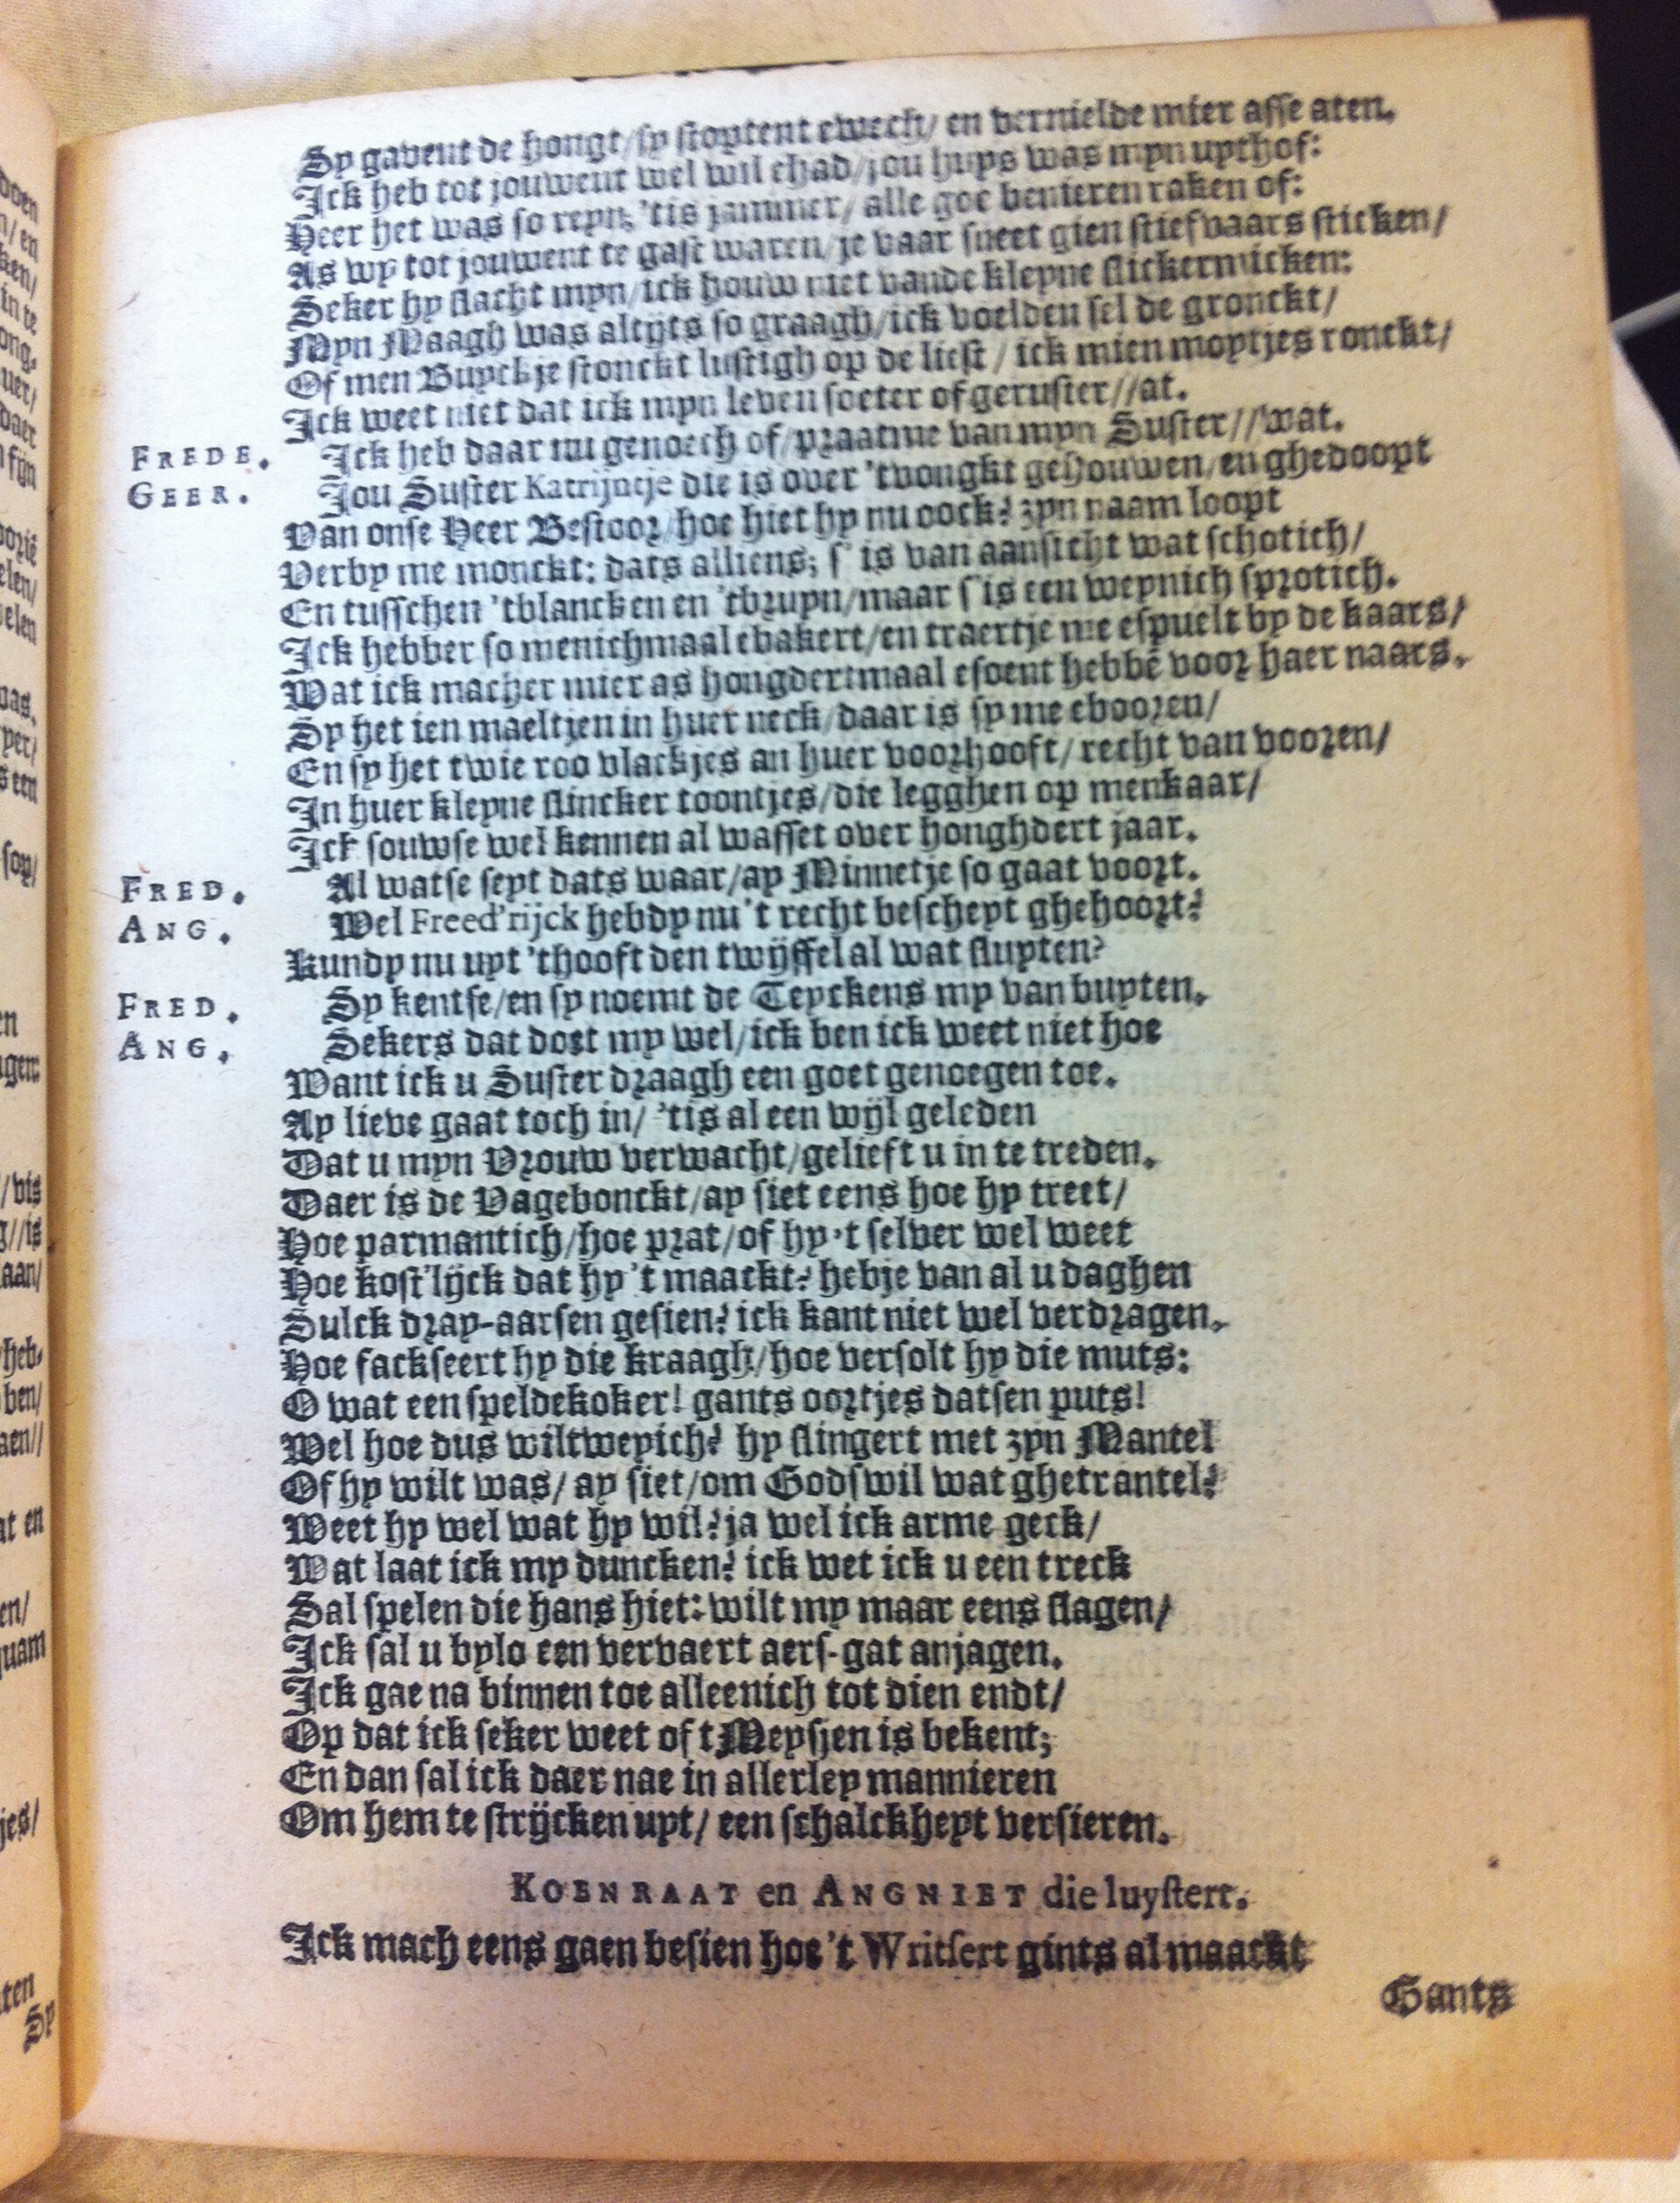 Sy gavent de hongt/sy stoptent eweck/ en vernielde mier asse aten.
Ick heb tot jouwent wel wil ehad/jou huys was myn uythof:
Heer het was so reyn; 'tis jammer/ alle goe benieren raken of:
As wy tot jouwent te gast waren/je vaar sneet gien stiefvaars sticken/
Seker hy slacht myn/ick houw niet vande kleyne slickermicken:
Myn Maagh was altijts so graagh/ick voelden sel de gronckt/
Of men Buyckje stonckt lustigh op de liest / ick mien moytjes ronckt/
Ick weet niet dat ick myn leven soeter of geruster//at.
FREDE. Ick heb daar nu genoech of/praatme van myn Suster//wat.
GEER. Jou Suster Katrijntje die is over 'tvongkt gehouwen/en ghedoopt
Van onse Heer Bestoor/hoe hiet hy nu oock? zyn naam loopt
Verby me monckt: dats alliens; s' is van aansicht wat schotich/
En tusschen 'tblancken en 'tbruyn/maar s'is een weynich sprotich.
Ick hebber so menichmaal ebakert/en traertje me espuelt by de kaars/
Wat ick macher mier as hongdertmaal esoent hebbē voor haer naars.
Sy het ien maeltjen in huer neck/daar is sy me ebooren/
En sy het twie roo vlackjes an huer voorhooft/recht van vooren/
In huer kleyne slincker toontjes/die legghen op menkaar/
Ick souwse wel kennen al wasset over honghdert jaar.
FRED. Al watse seyt dats waar/ay Minnetje so gaat voort.
ANG. Wel Freed'rijck hebdy nu 't recht bescheyt ghehoort?
Kundy nu uyt 'thooft den twijffel al wat sluyten?
FRED. Sy kentse/en sy noemt de Teyckens my van buyten.
ANG. Sekers dat doet my wel/ick ben ick weet niet hoe
Want ick u Suster draagh een goet genoegen toe.
Ay lieve gaat toch in/ 'tis al een wijl geleden
Dat u myn Vrouw verwacht/gelieft u in te treden.
Daer is de Vagebonckt/ay siet eens hoe hy treet/
Hoe parmantich/hoe prat/of hy 't selver wel weet
Hoe kost'lijck dat hy 't maackt? hebje van al u daghen
Sulck dray-aarsen gesien? ick kant niet wel verdragen.
Hoe fackseert hy die kraagh/hoe versolt hy die muts:
O wat een speldekoker! gants oortjes datsen puts!
Wel hoe dus wiltweyich? hy slingert met zyn Mantel
Of hy wilt was/ ay siet/om Godswil wat ghetrantel?
Weet hy wel wat hy wil? ja wel ick arme geck/
Wat laat ick my duncken? ick wet ick u een treck
Sal spelen die hans hiet: wilt my maar eens slagen/
Ick sal u bylo een vervaert aers-gat anjagen.
Ick gae na binnen toe alleenich tot dien endt/
Op dat ick seker weet of t Meysjen is bekent;
En dan sal ick daer nae in allerley mannieren
Om hem te strijcken uyt/ een schalckheyt versieren.
KOENRAAT en ANGNIET die luystert.
Ick mach eens gaen besien hoe 't Writsert gints al maackt
Gants